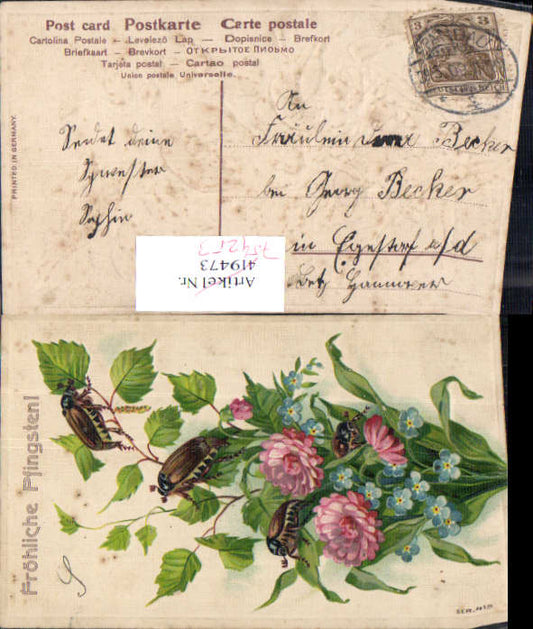 Post card Postkarte Carte postale
Cartolina Postale – Levelező Lap – Dopisnice – Brefkort
Briefkaart – Brevkort – ОТКРЫТОЕ ПИСЬМО
Tarjeta postal – Cartao postal
Union postale Universelle.
3 3
PRINTED IN GERMANY.
Sendet deine
Schwester
Sophie
An
Fräulein Becker
bei Georg Becker
in Egestorf a/d
Betz Hannover
Artikel Nr.
419473
Fröhliche Pfingsten!